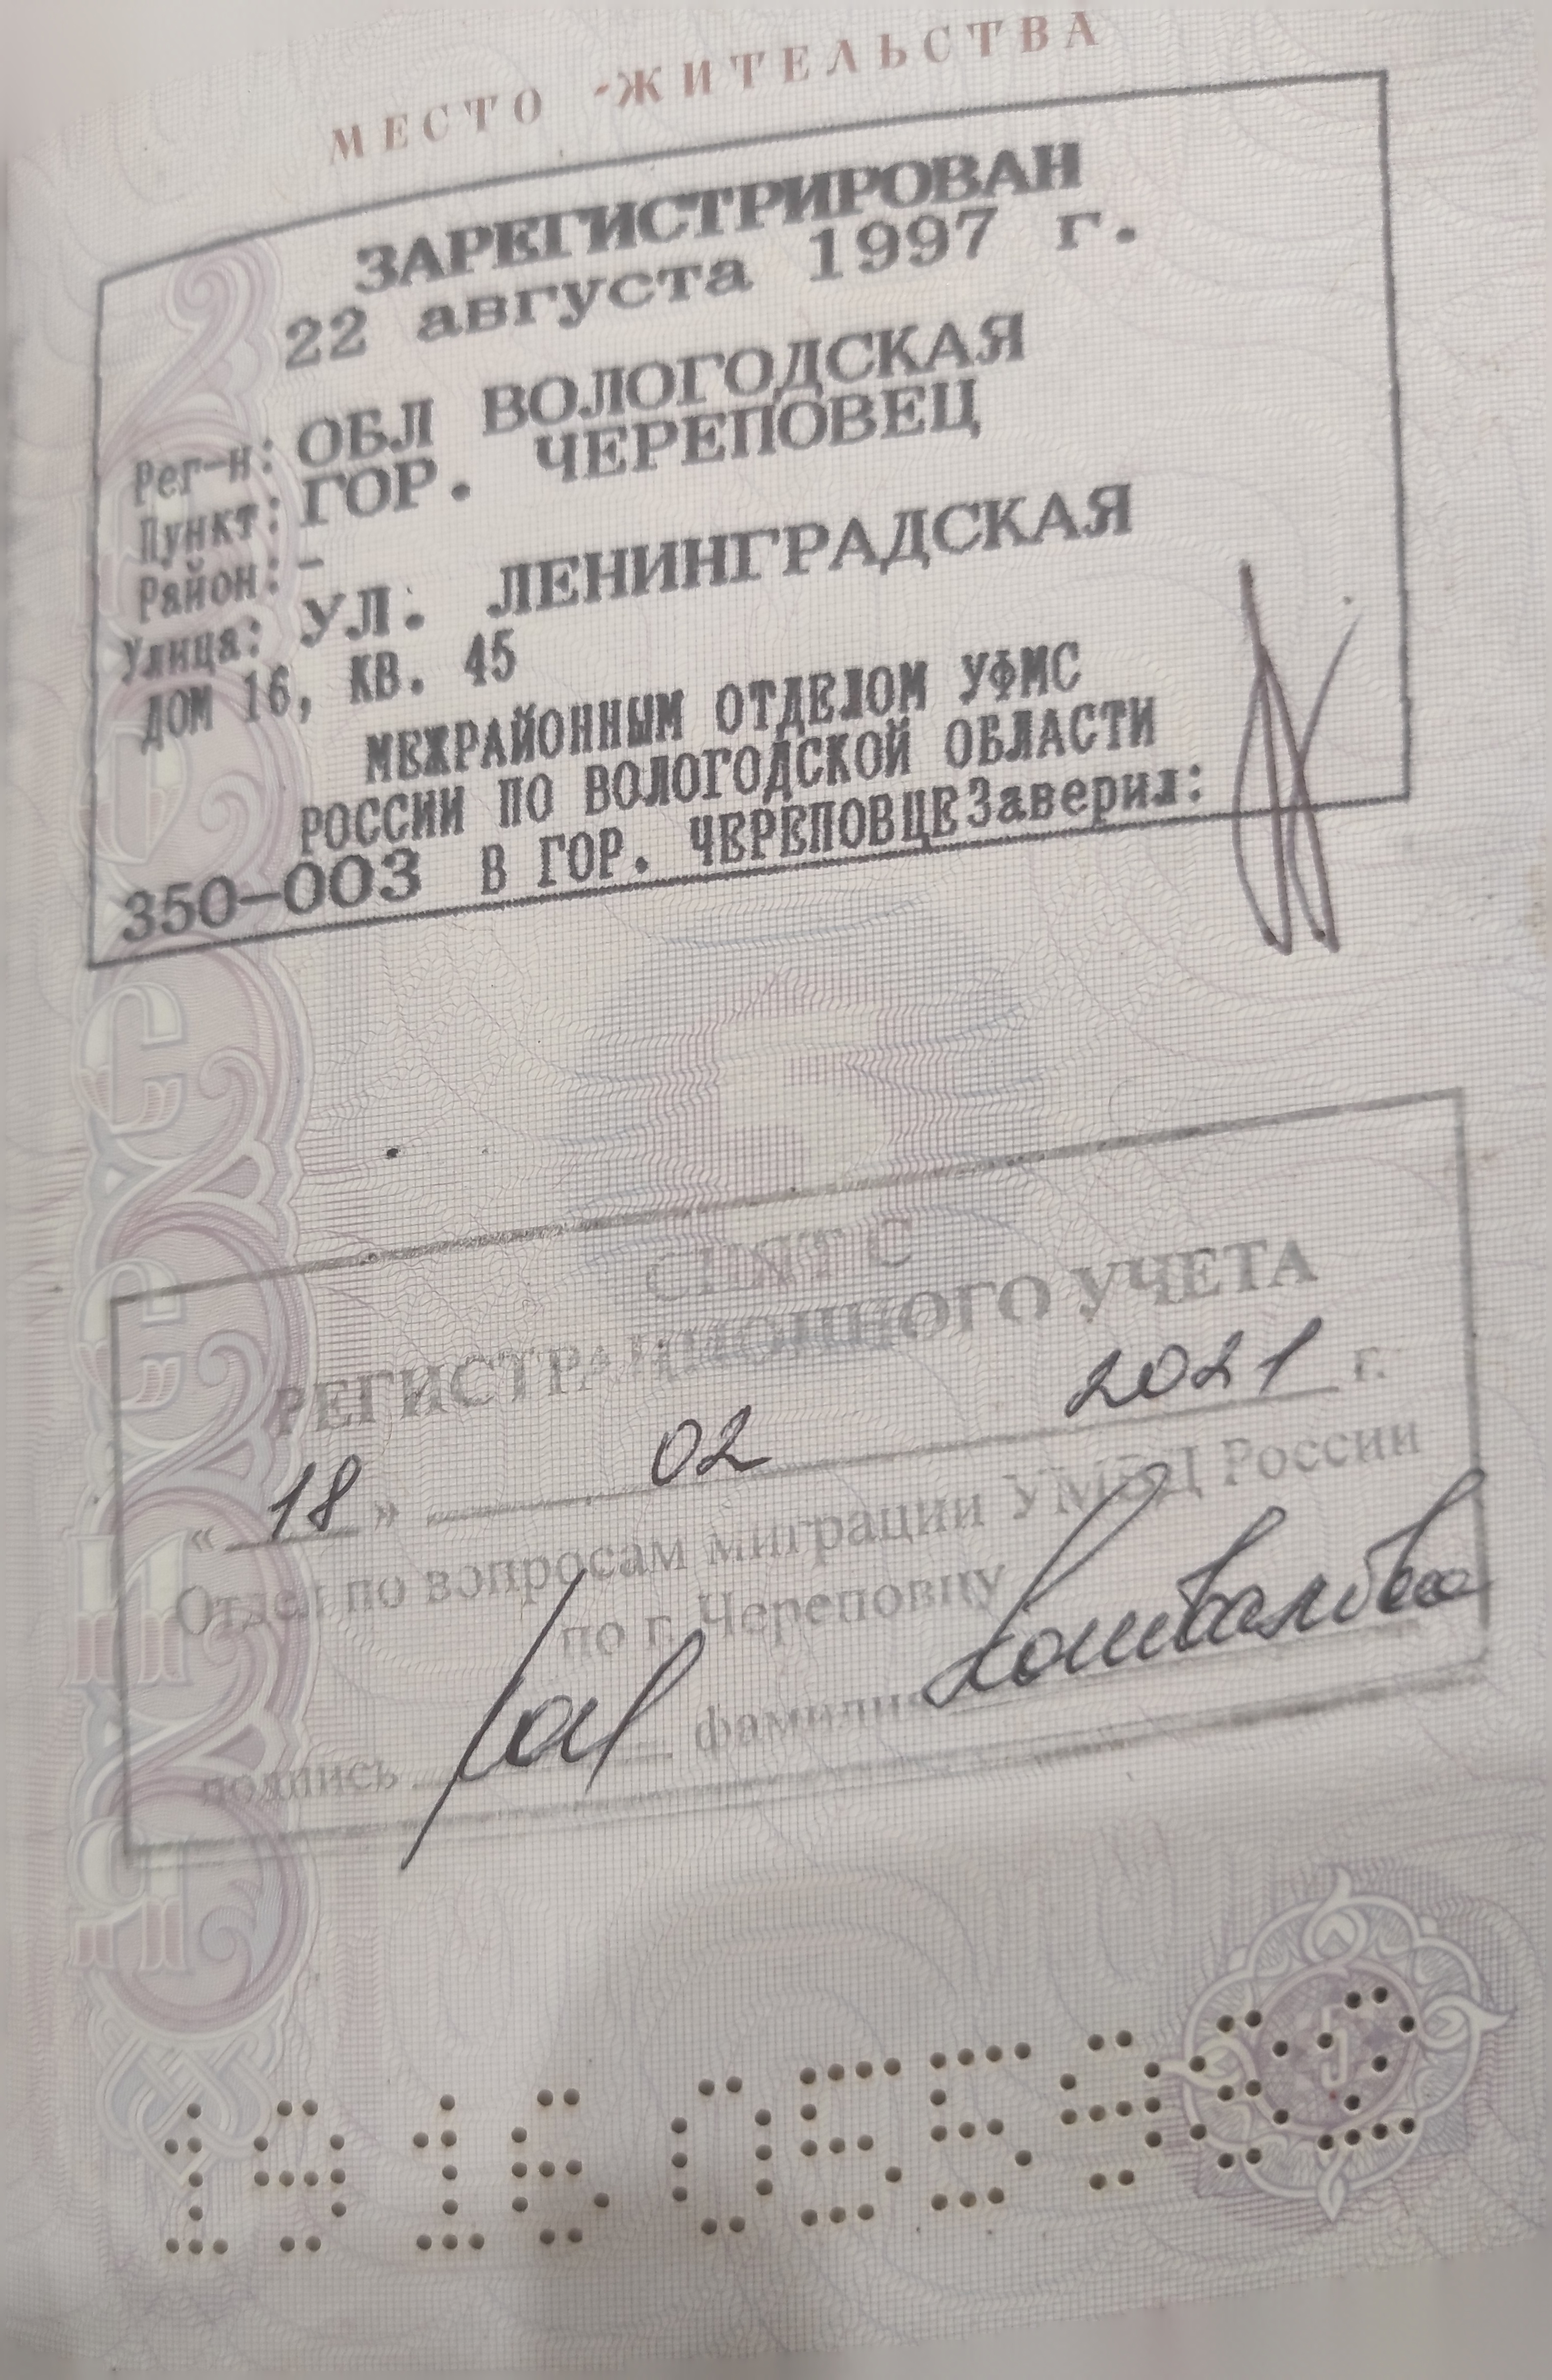 МЕСТО ЖИТЕЛЬСТВА
ЗАРЕГИСТРИРОВАН
22 августа 1997 г.
Рег-н: ОБЛ ВОЛОГОДСКАЯ
Пункт: ГОР. ЧЕРЕПОВЕЦ
Район: -
Улица: УЛ. ЛЕНИНГРАДСКАЯ
ДОМ 16, КВ. 45
МЕЖРАЙОННЫМ ОТДЕЛОМ УФМС
РОССИИ ПО ВОЛОГОДСКОЙ ОБЛАСТИ
350-003 В ГОР. ЧЕРЕПОВЦЕ Заверил:
СНЯТ С
РЕГИСТРАЦИОННОГО УЧЕТА
« 18 » 02 2021 г.
Отдел по вопросам миграции УМВД России
по г. Череповцу
подпись фамилия
5